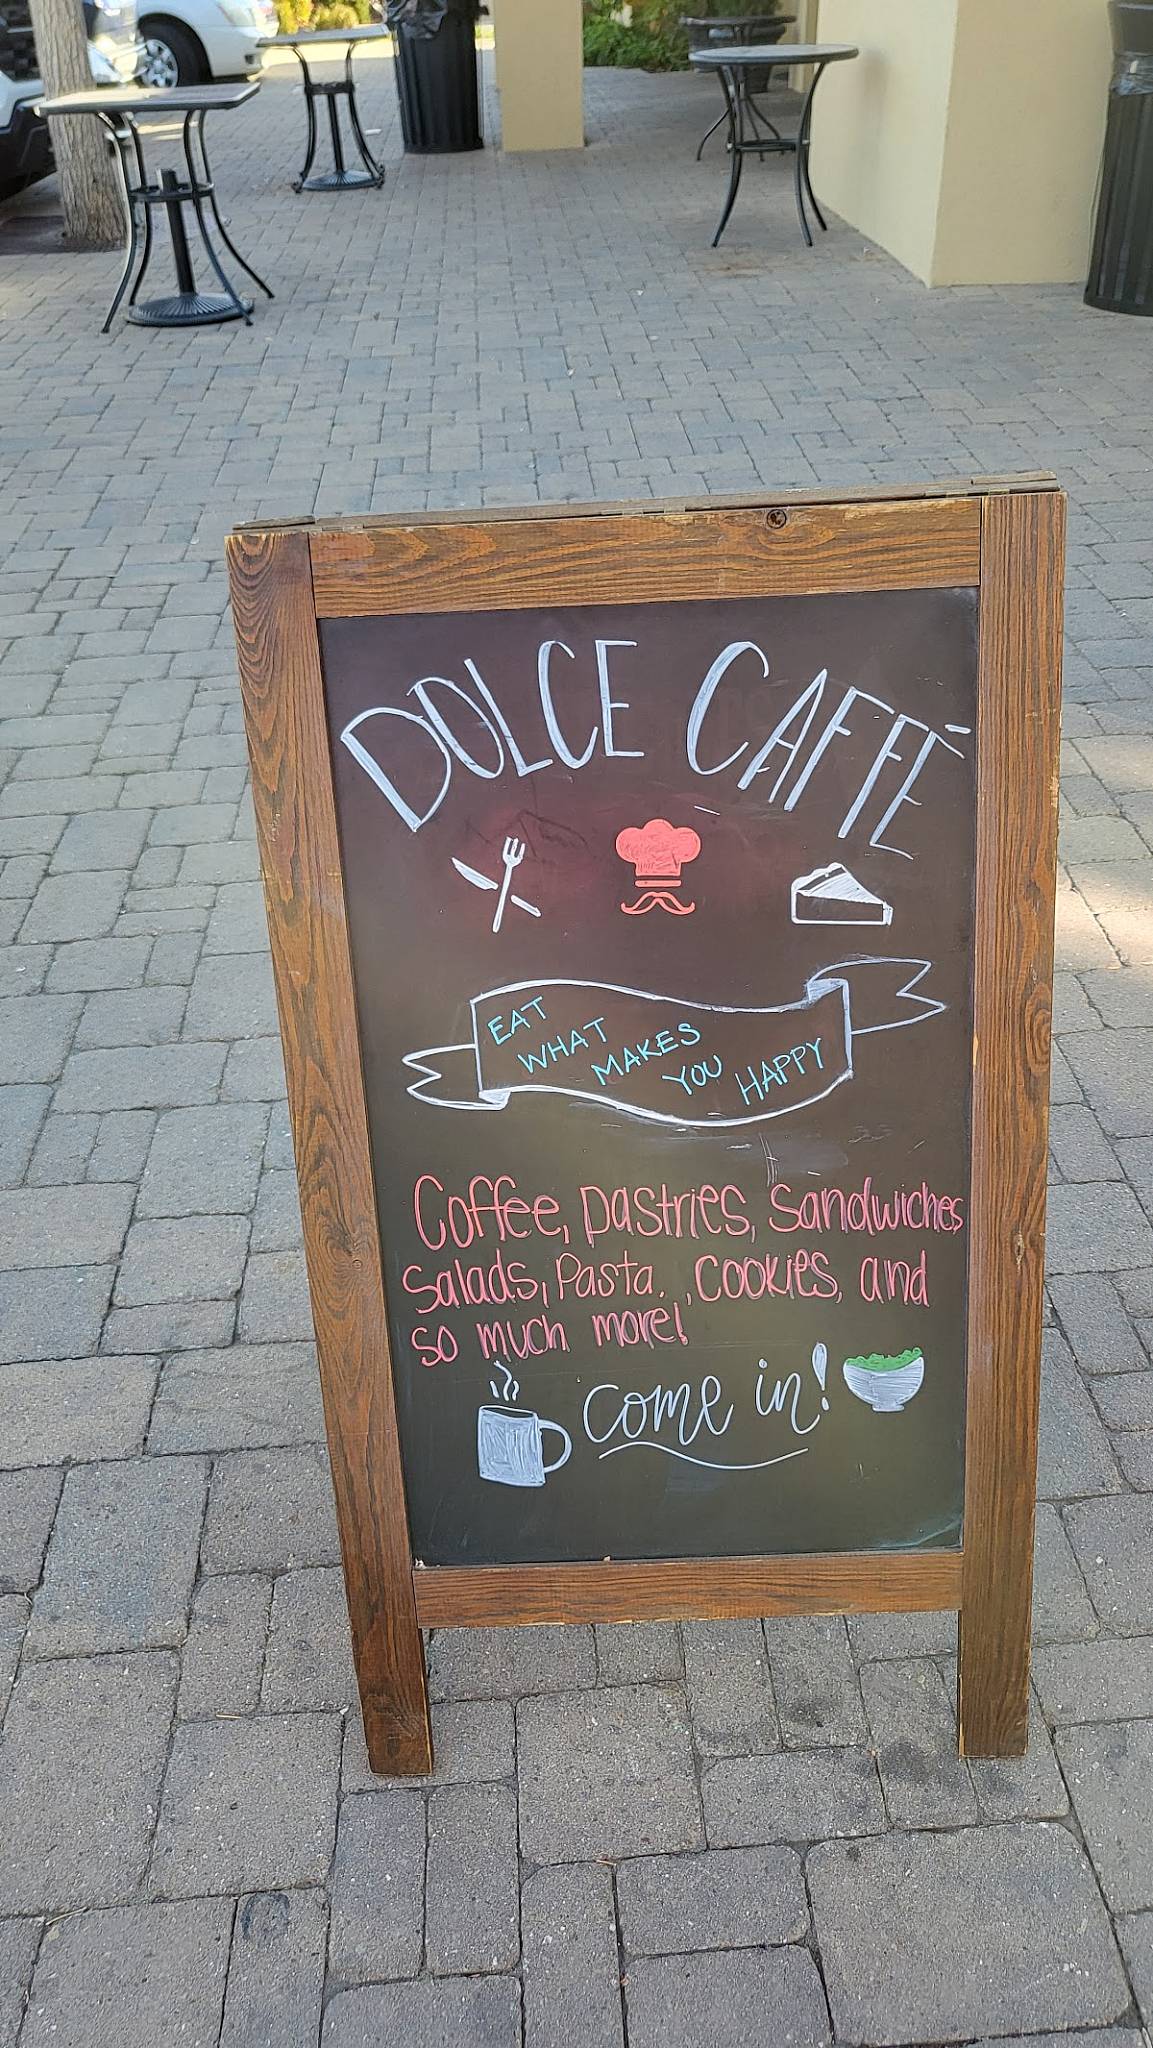 DOLCE CAFFÉ
EAT
WHAT
MAKES
YOU
HAPPY
Coffee, pastries, sandwiches
Salads, Pasta. , cookies, and
so much more!
come in!